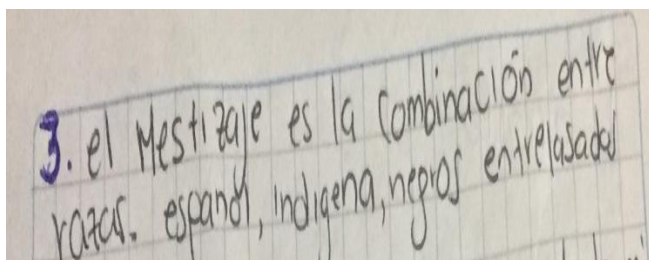 3. el Mestizaje es la combinación entre
razas. español, indigena, negros entrelasadas